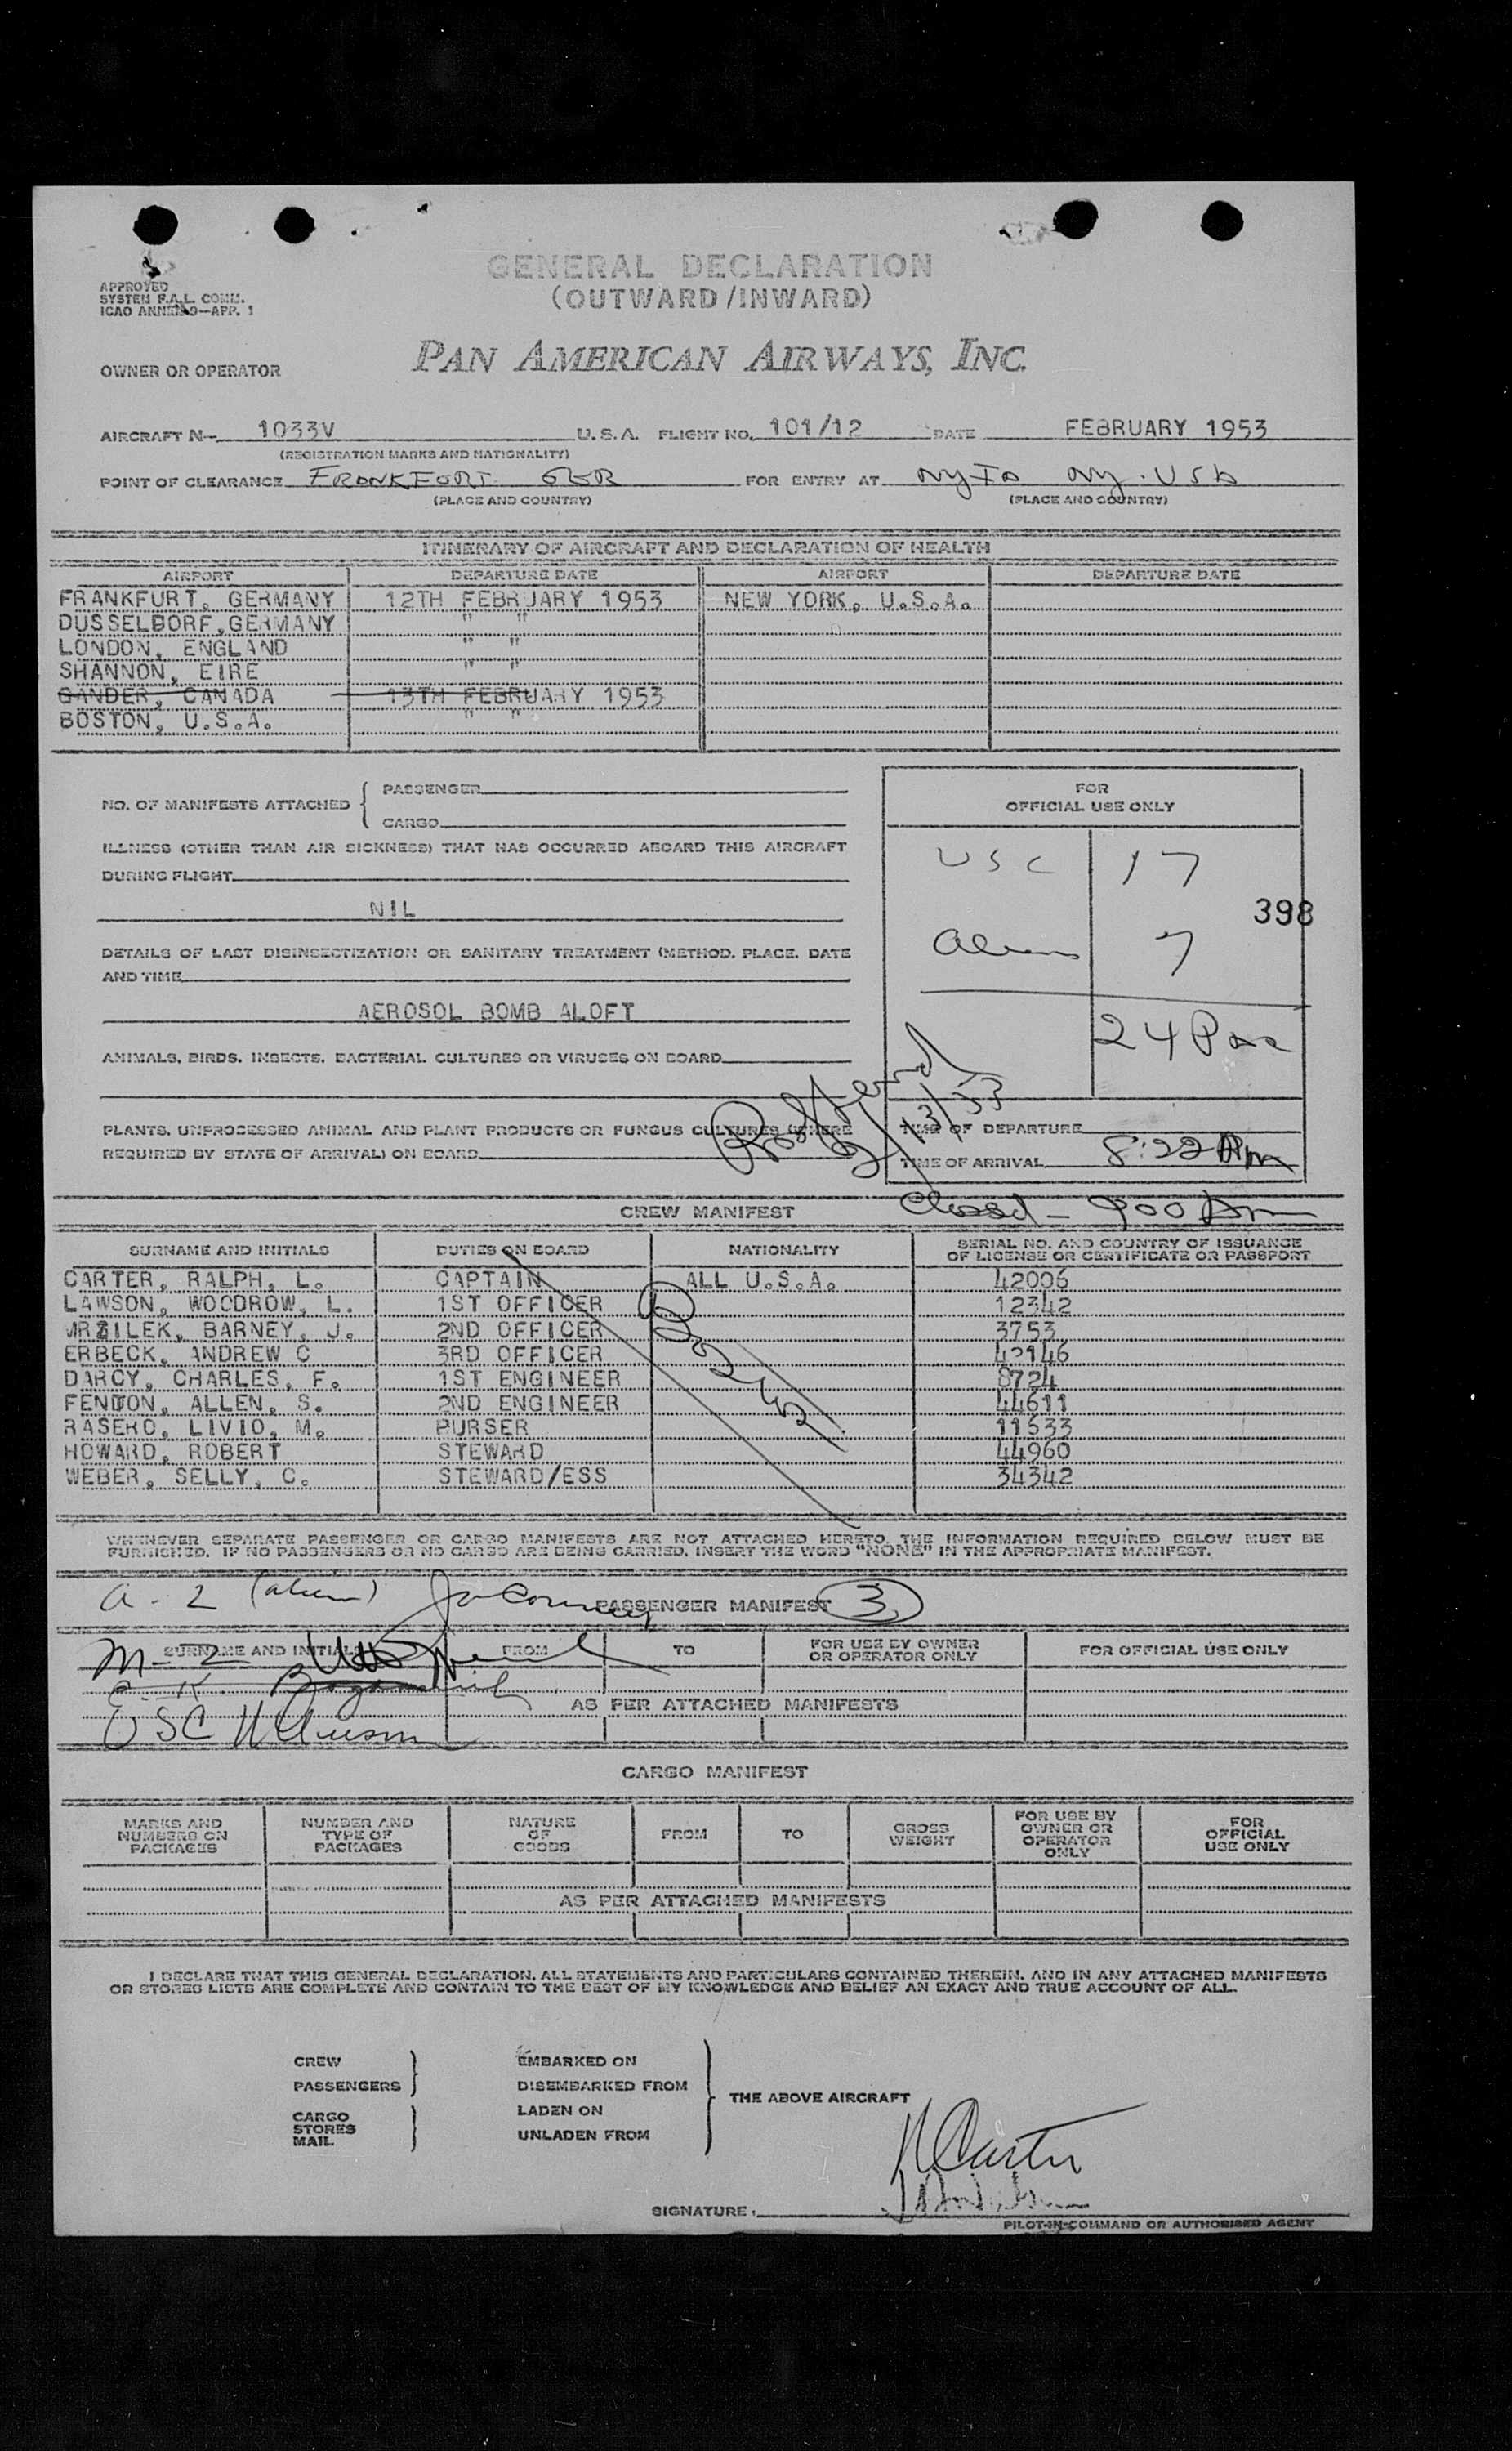 GENERAL DECLARATION
(OUTWARD/INWARD)
APPROVED
SYSTEM F.A.L. COMM.
ICAO ANNEX 9—APP. 1
OWNER OR OPERATOR PAN AMERICAN AIRWAYS, INC.
AIRCRAFT N— 1033V U.S.A. FLIGHT NO. 101/12 DATE FEBRUARY 1953
(REGISTRATION MARKS AND NATIONALITY)
POINT OF CLEARANCE FRANKFURT GER FOR ENTRY AT NYIA NY. USA
(PLACE AND COUNTRY) (PLACE AND COUNTRY)
ITINERARY OF AIRCRAFT AND DECLARATION OF HEALTH
AIRPORT DEPARTURE DATE AIRPORT DEPARTURE DATE
FRANKFURT, GERMANY 12TH FEBRUARY 1953 NEW YORK, U.S.A.
DUSSELDORF, GERMANY " "
LONDON, ENGLAND " "
SHANNON, EIRE " "
GANDER, CANADA 13TH FEBRUARY 1953
BOSTON, U.S.A. " "
NO. OF MANIFESTS ATTACHED { PASSENGER
CARGO
FOR
OFFICIAL USE ONLY
ILLNESS (OTHER THAN AIR SICKNESS) THAT HAS OCCURRED ABOARD THIS AIRCRAFT
DURING FLIGHT
USC 17
NIL
398
DETAILS OF LAST DISINSECTIZATION OR SANITARY TREATMENT (METHOD, PLACE, DATE
AND TIME
Aliens 7
AEROSOL BOMB ALOFT
24 Pax
ANIMALS, BIRDS, INSECTS, BACTERIAL CULTURES OR VIRUSES ON BOARD
2/13/53
PLANTS, UNPROCESSED ANIMAL AND PLANT PRODUCTS OR FUNGUS CULTURES (WHERE
REQUIRED BY STATE OF ARRIVAL) ON BOARD
TIME OF DEPARTURE
TIME OF ARRIVAL 8:22 Am
CREW MANIFEST Closed - 900 Am
SURNAME AND INITIALS DUTIES ON BOARD NATIONALITY SERIAL NO. AND COUNTRY OF ISSUANCE
OF LICENSE OR CERTIFICATE OR PASSPORT
CARTER, RALPH, L. CAPTAIN ALL U.S.A. 42006
LAWSON, WOODROW, L. 1ST OFFICER 12342
MRZILEK, BARNEY, J. 2ND OFFICER 3753
ERBECK, ANDREW C 3RD OFFICER 42146
DARCY, CHARLES, F. 1ST ENGINEER 8724
FENTON, ALLEN, S. 2ND ENGINEER 44611
RASERO, LIVIO, M. PURSER 11633
HOWARD, ROBERT STEWARD 44960
WEBER, SELLY, C. STEWARD/ESS 34342
WHENEVER SEPARATE PASSENGER OR CARGO MANIFESTS ARE NOT ATTACHED HERETO, THE INFORMATION REQUIRED BELOW MUST BE
FURNISHED. IF NO PASSENGERS OR NO CARGO ARE BEING CARRIED, INSERT THE WORD "NONE" IN THE APPROPRIATE MANIFEST.
A - 2 (alien)
PASSENGER MANIFEST 3
SURNAME AND INITIALS FROM TO FOR USE BY OWNER
OR OPERATOR ONLY FOR OFFICIAL USE ONLY
M - 2
AS PER ATTACHED MANIFESTS
USC
CARGO MANIFEST
MARKS AND
NUMBERS ON
PACKAGES NUMBER AND
TYPE OF
PACKAGES NATURE
OF
GOODS FROM TO GROSS
WEIGHT FOR USE BY
OWNER OR
OPERATOR
ONLY FOR
OFFICIAL
USE ONLY
AS PER ATTACHED MANIFESTS
I DECLARE THAT THIS GENERAL DECLARATION, ALL STATEMENTS AND PARTICULARS CONTAINED THEREIN, AND IN ANY ATTACHED MANIFESTS
OR STORES LISTS ARE COMPLETE AND CONTAIN TO THE BEST OF MY KNOWLEDGE AND BELIEF AN EXACT AND TRUE ACCOUNT OF ALL.
CREW
PASSENGERS }
CARGO
STORES
MAIL }
EMBARKED ON
DISEMBARKED FROM
LADEN ON
UNLADEN FROM
} THE ABOVE AIRCRAFT
R Carter
SIGNATURE,
PILOT-IN-COMMAND OR AUTHORISED AGENT